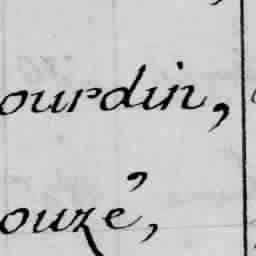 ourdin,
ouzé,